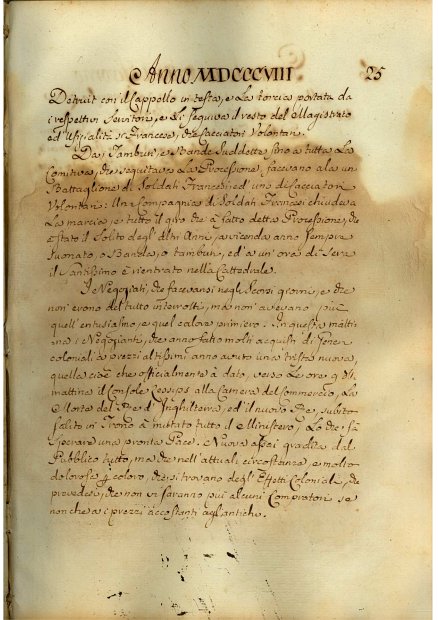 Anno MDCCCVIII 25
Detruit con il Cappello in testa, e La torcia portata da
i respettivi Servitori, e Li seguiva il resto del Magistrato
ed Ufizialità Francese, e Cacciatori Volontari.
Da Tamburi, e Bande Suddette sino a tutta La
Comitiva, che seguitava La Processione, facevano ala un
Battaglione di Soldati Francesi ed uno di Cacciatori
Volontari: Una Compagnia di Soldati Francesi chiudeva
La marcia, e tutto il giro che à fatto detta Processione, che
è stato il Solito degl'Altri Anni, a vicenda anno sempre
suonato, o Banda, o tamburi, ed a un'ora di Sera
il Santissimo è rientrato nella Cattedrale.
I Negoziati, che facevansi negli Scorsi giorni, e che
non erono del tutto interrotti, ma non avevano più
quell'entusiasmo, e quel calore primiero. In questa matti
na i Negozianti, che anno fatto molti acquisti di Generi
coloniali a prezzi altissimi anno avuto una trista nuova,
quella cioè che officialmente à dato, verso Le ore 9 di
mattina il Console alla Camera del Commercio, La
Morte del Re d'Inghilterra, ed il nuovo Re, subito
salito in Trono à mutato tutto il Ministero, Lo che fà
sperare una pronta Pace. Nuova assai gradita dal
Pubblico tutto, ma che nell'attuali circostanze, e molto
dolorosa p coloro, che si trovano degli Effetti Coloniali, che
prevedesi, che non vi saranno più alcuni Compratori se
non che a i prezzi accostanti agl'antichi.